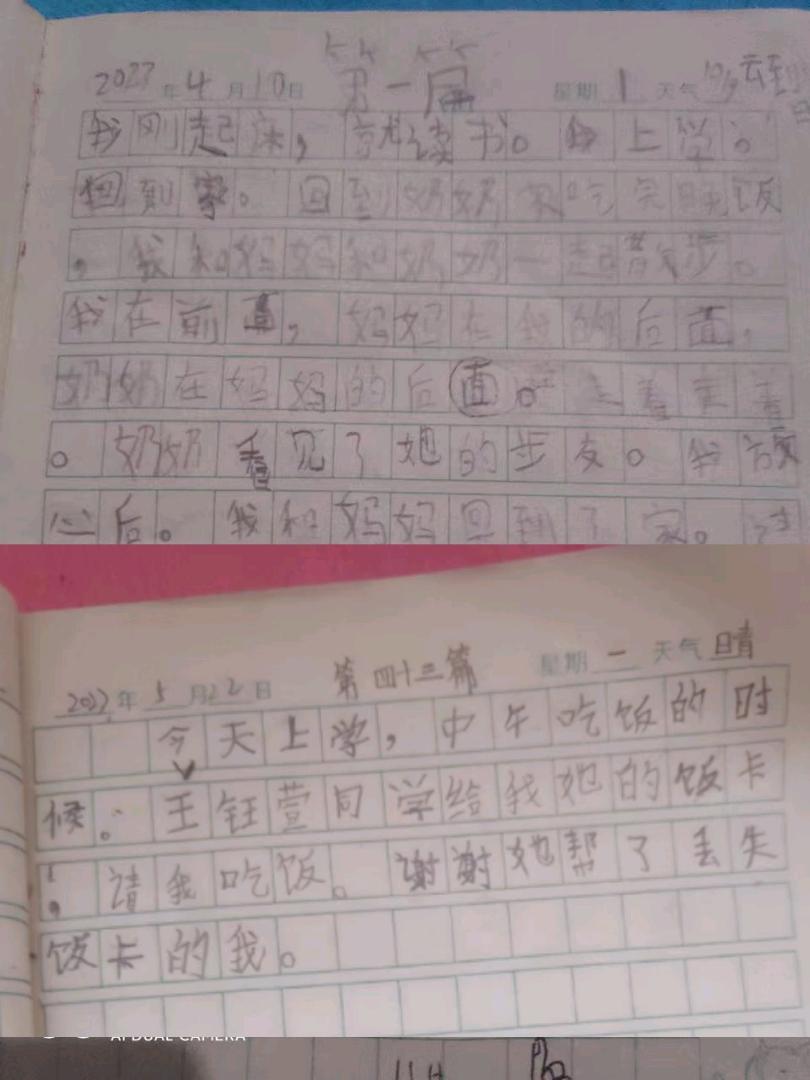 2022年4月10日 第一篇 星期1 天气
我刚起床，就读书。我上学。
回到家。回到奶奶家吃完晚饭
，我和妈妈和奶奶一起散步。
我在前面，妈妈在我的后面，
奶奶在妈妈的后面。走着走着
。奶奶看见了她的步友。我
后。我和妈妈回到了家。
2022年5月22日 第四十三篇 星期一 天气晴
今天上学，中午吃饭的时
候。王钰萱同学给我她的饭卡
，请我吃饭。谢谢她帮了丢失
饭卡的我。
AI DUAL CAMERA